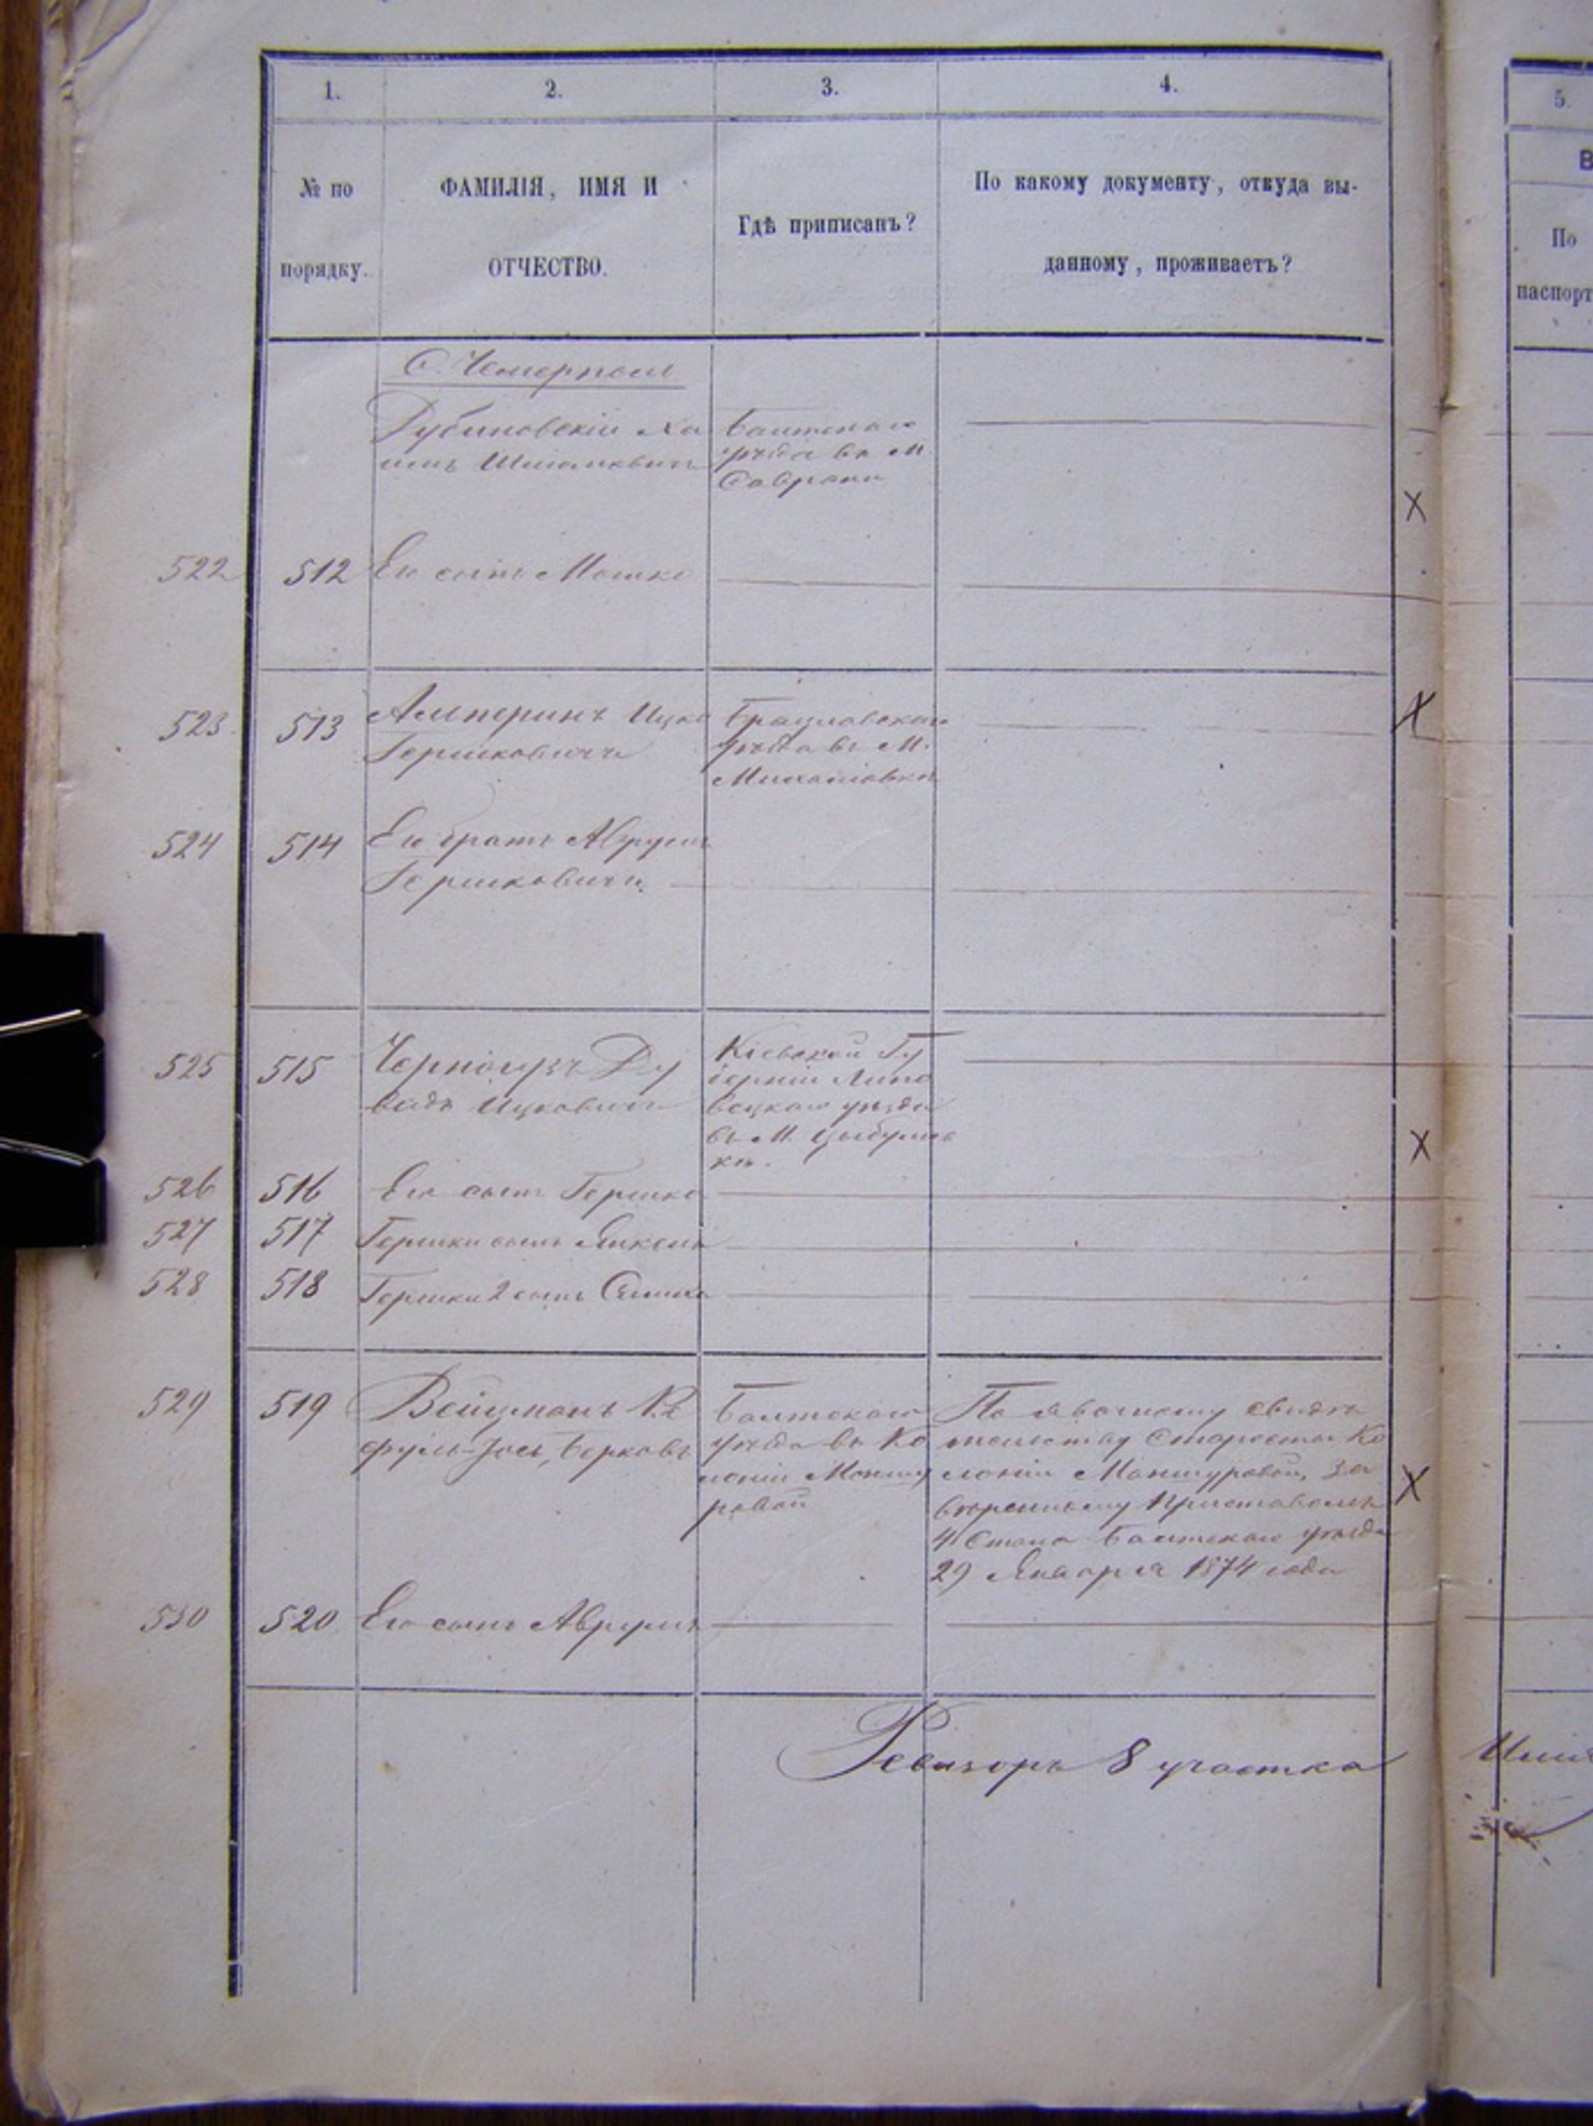 1. 2. 3. 4. 5.
№ по
порядку.
ФАМИЛІЯ, ИМЯ И
ОТЧЕСТВО.
Гдѣ приписанъ?
По какому документу, откуда вы-
данному, проживаетъ?
В
По
паспорт
С. Чемерполь
Рубиновскій Ха
имъ Шмилевичъ
Балтскаго
уѣзда въ М.
Саврани
522 512 Его сынъ Мошко
523 513 Альперинъ Ицко
Гершковичъ
Брацлавскаго
уѣзда въ М.
Михайловкѣ
524 514 Его братъ Аврумъ
Гершковичъ
525 515 Черногузъ Ду
видъ Ицковичъ
Кіевской Гу
берніи Липо
вецкаго уѣзда
въ М. Цыбулев
кѣ.
526 516 Его сынъ Гершко
527 517 Гершки сынъ Янкель
528 518 Гершки 2 сынъ
529 519 Вейцманъ Ке
фуль-Іось, Берковъ
Балтскаго
уѣзда въ Ко
лоніи Маншу
ровой
По явочному свидѣ
тельству Старосты Ко
лоніи Маншуровой, за
вѣренному Приставомъ
4 Стана Балтскаго уѣзда
29 Января 1874 года
530 520 Его сынъ Аврумъ
Ревизоръ 8 участка